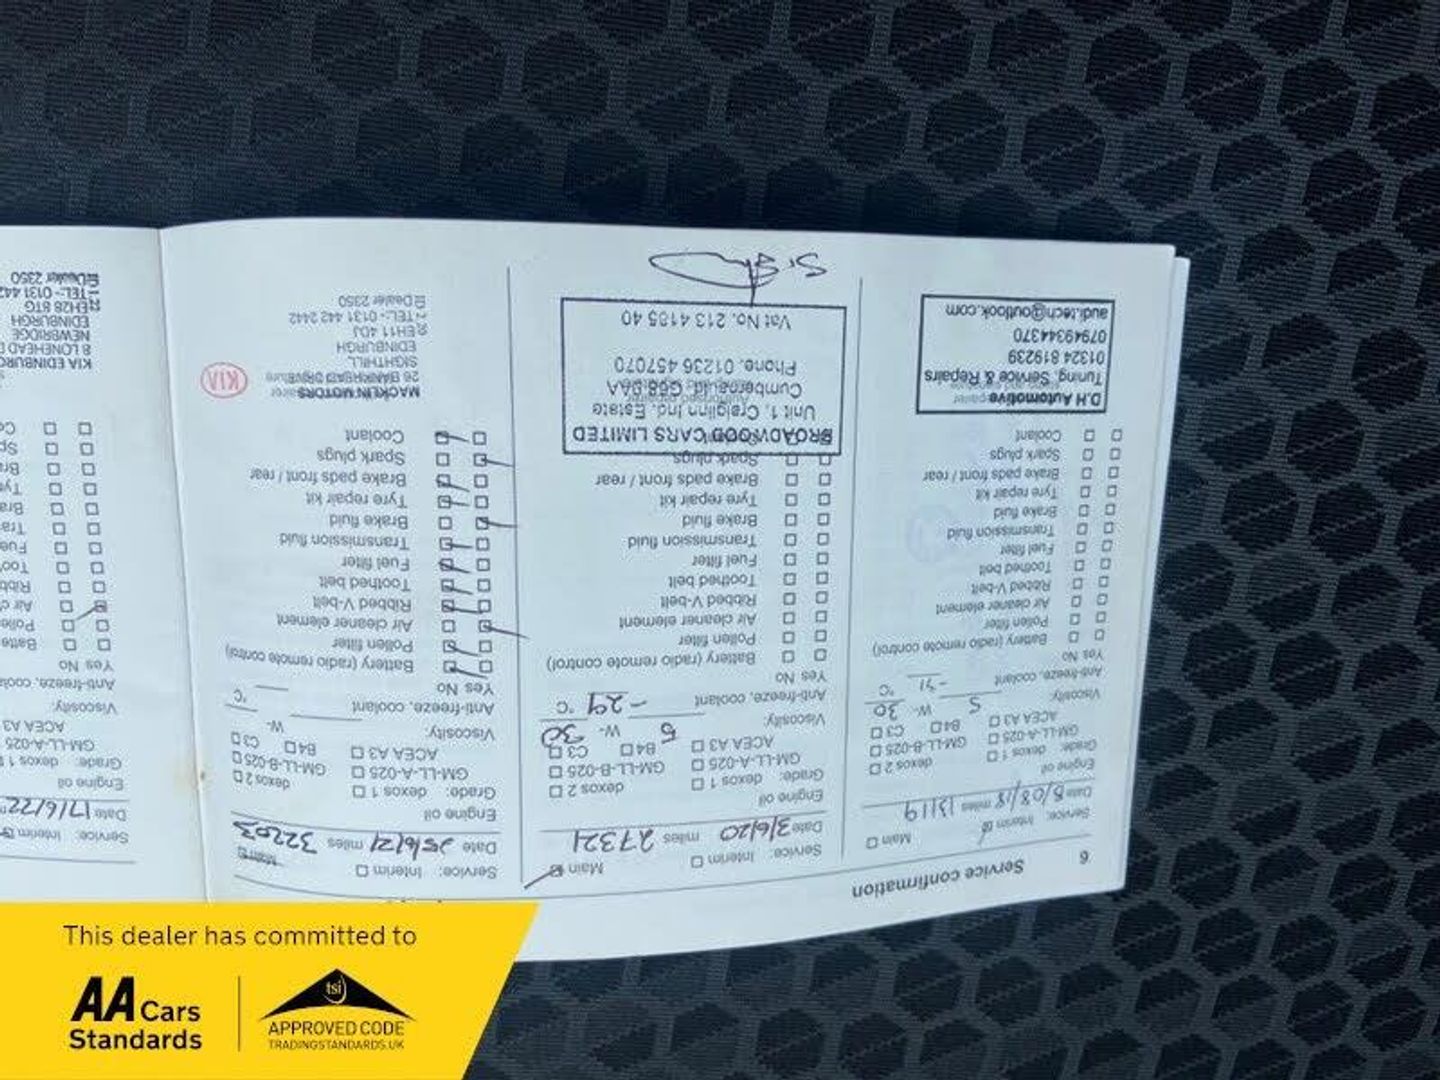 6
Service confirmation
Service: Interim Main
Date 8/03/18 miles 13119
Engine oil
Grade: dexos 1 dexos 2
GM-LL-A-025 GM-LL-B-025
ACEA A3 B4 C3
Viscosity: 5 W- 30
Anti-freeze, coolant -31 °C
Yes No
Battery (radio remote control)
Pollen filter
Air cleaner element
Ribbed V-belt
Toothed belt
Fuel filter
Transmission fluid
Brake fluid
Tyre repair kit
Brake pads front / rear
Spark plugs
Coolant
D.H Automotive
Tuning, Service & Repairs
01324 819239
07949344370
audi.tech@outlook.com
Service: Interim Main
Date 3/6/20 miles 27321
Engine oil
Grade: dexos 1 dexos 2
GM-LL-A-025 GM-LL-B-025
ACEA A3 B4 C3
Viscosity: 5 W- 30
Anti-freeze, coolant -29 °C
Yes No
Battery (radio remote control)
Pollen filter
Air cleaner element
Ribbed V-belt
Toothed belt
Fuel filter
Transmission fluid
Brake fluid
Tyre repair kit
Brake pads front / rear
Spark plugs
BROADWOOD CARS LIMITED
Unit 1, Craiglinn Ind. Estate
Cumbernauld G68 9AA
Phone. 01236 457070
Vat No. 213 4185 40
Service: Interim Main
Date 25/6/21 miles 32203
Engine oil
Grade: dexos 1 dexos 2
GM-LL-A-025 GM-LL-B-025
ACEA A3 B4 C3
Viscosity: W-
Anti-freeze, coolant °C
Yes No
Battery (radio remote control)
Pollen filter
Air cleaner element
Ribbed V-belt
Toothed belt
Fuel filter
Transmission fluid
Brake fluid
Tyre repair kit
Brake pads front / rear
Spark plugs
Coolant
MACKLIN MOTORS
26 BANKHEAD DRIVE
SIGHTHILL
EDINBURGH
EH11 4DJ
TEL:- 0131 442 2442
Dealer 2350
KIA
Service: Interim
Date 17/6/22
Engine oil
Grade: dexos 1
GM-LL-A-025
ACEA A3
Viscosity:
Anti-freeze, coolant
Yes No
KIA EDINBURGH
8 LONEHEAD
NEWBRIDGE
EDINBURGH
EH28 8TG
TEL:- 0131 442
Dealer 2350
This dealer has committed to
AA Cars
Standards
tsi
APPROVED CODE
TRADINGSTANDARDS.UK